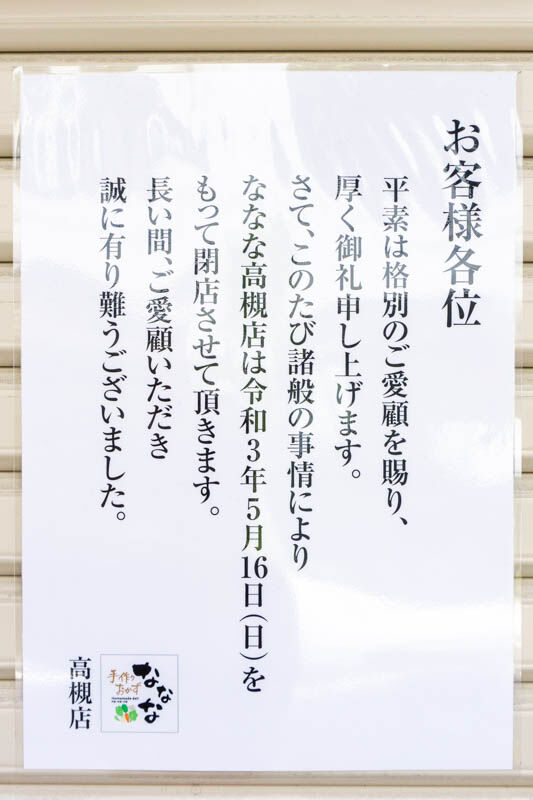 お客様各位
平素は格別のご愛顧を賜り、
厚く御礼申し上げます。
さて、このたび諸般の事情により
ななな高槻店は令和3年5月16日(日)を
もって閉店させて頂きます。
長い間、ご愛顧いただき
誠に有り難うございました。
手作り
おかず
ななな
Homemade deli
高槻店